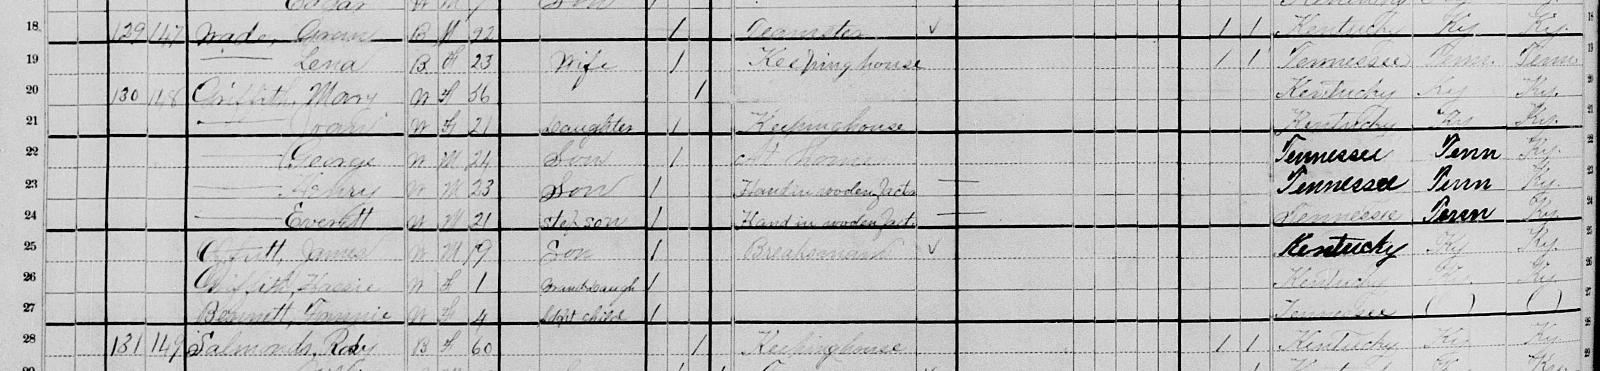 Edgar W M 7 Son 1
18 129 147 Wade, Green B M 22 1 Teamster ✓ 1 1 Kentucky Ky Ky.
19 — Lena B F 23 Wife 1 Keepinghouse 1 1 Tennessee Tenn. Tenn
20 130 148 Griffith, Mary W F 56 1 Kentucky Ky Ky.
21 — W F 21 Daughter 1 Keepinghouse Kentucky Ky. Ky.
22 — George W M 24 Son 1 At home Tennessee Tenn Ky.
23 — Henry W M 23 Son 1 Hand in wooden fact. — Tennessee Tenn Ky.
24 — Everett W M 21 Step son 1 Hand in wooden fact. — Tennessee Tenn Ky.
25 James W M 19 Son 1 Breaksman ✓ Kentucky Ky Ky.
26 Griffith, W F 1 Grand Daugh 1 Kentucky Ky. Ky.
27 Bennett, Fannie W F 4 Adopt child 1 Tennessee ( ) ( )
28 131 149 Salmonds, B F 60 1 Keepinghouse 1 1 Kentucky Ky. Ky